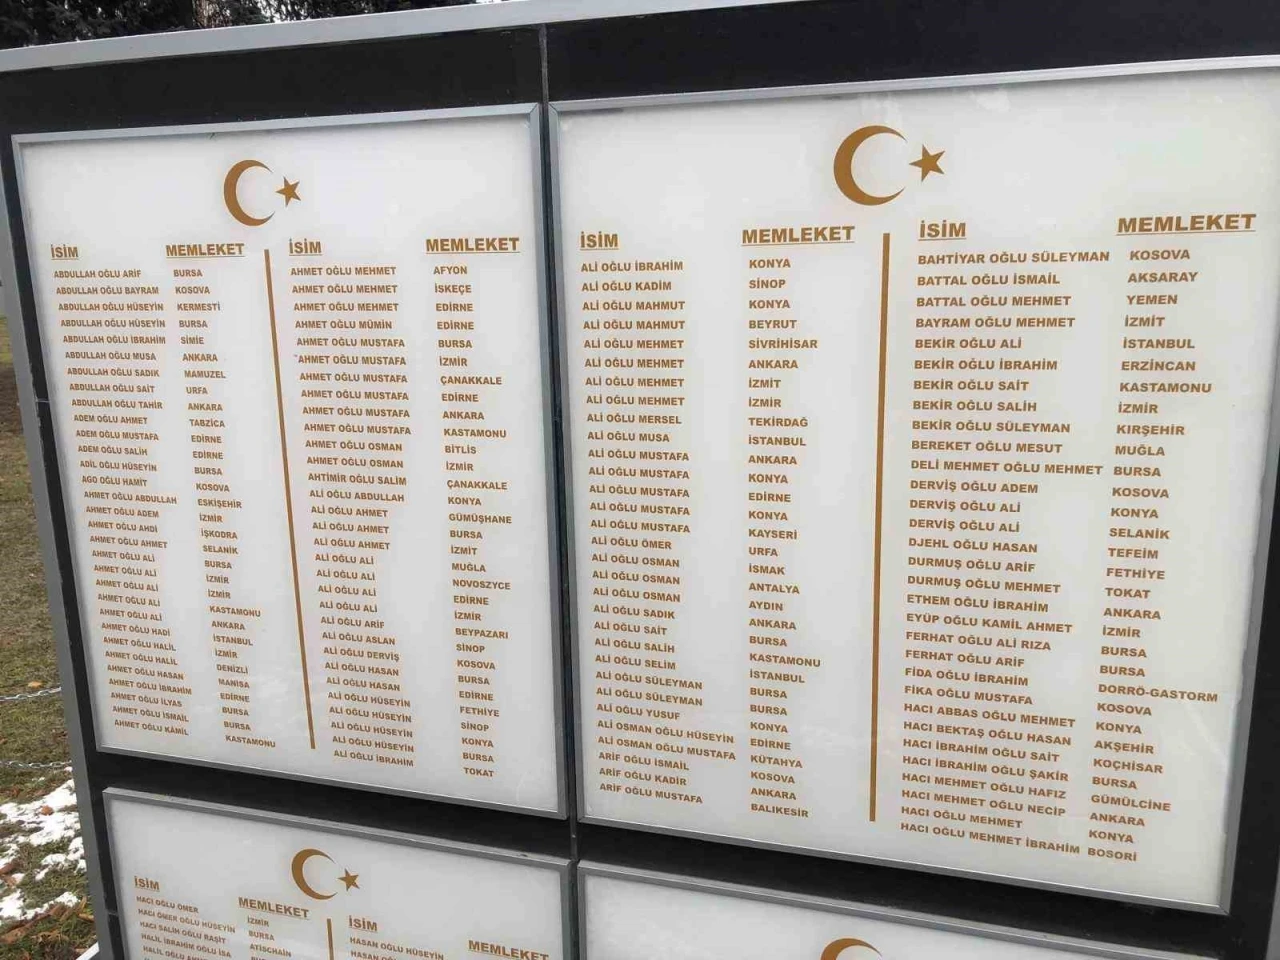 İSİM MEMLEKET
ABDULLAH OĞLU ARİF BURSA
ABDULLAH OĞLU BAYRAM KOSOVA
ABDULLAH OĞLU HÜSEYİN KERMESTİ
ABDULLAH OĞLU HÜSEYİN BURSA
ABDULLAH OĞLU İBRAHİM SİMİE
ABDULLAH OĞLU MUSA ANKARA
ABDULLAH OĞLU SADIK MAMUZEL
ABDULLAH OĞLU SAİT URFA
ABDULLAH OĞLU TAHİR ANKARA
ADEM OĞLU AHMET TABZİCA
ADEM OĞLU MUSTAFA EDİRNE
ADEM OĞLU SALİH EDİRNE
ADİL OĞLU HÜSEYİN BURSA
AGO OĞLU HAMİT KOSOVA
AHMET OĞLU ABDULLAH ESKİŞEHİR
AHMET OĞLU ADEM İZMİR
AHMET OĞLU AHDİ İŞKODRA
AHMET OĞLU AHMET SELANİK
AHMET OĞLU ALİ BURSA
AHMET OĞLU ALİ İZMİR
AHMET OĞLU ALİ İZMİR
AHMET OĞLU ALİ KASTAMONU
AHMET OĞLU ALİ ANKARA
AHMET OĞLU HADİ İSTANBUL
AHMET OĞLU HALİL İZMİR
AHMET OĞLU HALİL DENİZLİ
AHMET OĞLU HASAN MANİSA
AHMET OĞLU İBRAHİM EDİRNE
AHMET OĞLU İLYAS BURSA
AHMET OĞLU İSMAİL BURSA
AHMET OĞLU KAMİL KASTAMONU
İSİM MEMLEKET
AHMET OĞLU MEHMET AFYON
AHMET OĞLU MEHMET İSKEÇE
AHMET OĞLU MEHMET EDİRNE
AHMET OĞLU MÜMİN EDİRNE
AHMET OĞLU MUSTAFA BURSA
AHMET OĞLU MUSTAFA İZMİR
AHMET OĞLU MUSTAFA ÇANAKKALE
AHMET OĞLU MUSTAFA EDİRNE
AHMET OĞLU MUSTAFA ANKARA
AHMET OĞLU MUSTAFA KASTAMONU
AHMET OĞLU OSMAN BİTLİS
AHMET OĞLU OSMAN İZMİR
AHTİMİR OĞLU SALİM ÇANAKKALE
ALİ OĞLU ABDULLAH KONYA
ALİ OĞLU AHMET GÜMÜŞHANE
ALİ OĞLU AHMET BURSA
ALİ OĞLU AHMET İZMİT
ALİ OĞLU ALİ MUĞLA
ALİ OĞLU ALİ NOVOSZYCE
ALİ OĞLU ALİ EDİRNE
ALİ OĞLU ALİ İZMİR
ALİ OĞLU ARİF BEYPAZARI
ALİ OĞLU ASLAN SİNOP
ALİ OĞLU DERVİŞ KOSOVA
ALİ OĞLU HASAN BURSA
ALİ OĞLU HASAN EDİRNE
ALİ OĞLU HÜSEYİN FETHİYE
ALİ OĞLU HÜSEYİN SİNOP
ALİ OĞLU HÜSEYİN KONYA
ALİ OĞLU HÜSEYİN BURSA
ALİ OĞLU İBRAHİM TOKAT
İSİM MEMLEKET
ALİ OĞLU İBRAHİM KONYA
ALİ OĞLU KADİM SİNOP
ALİ OĞLU MAHMUT KONYA
ALİ OĞLU MAHMUT BEYRUT
ALİ OĞLU MEHMET SİVRİHİSAR
ALİ OĞLU MEHMET ANKARA
ALİ OĞLU MEHMET İZMİT
ALİ OĞLU MEHMET İZMİR
ALİ OĞLU MERSEL TEKİRDAĞ
ALİ OĞLU MUSA İSTANBUL
ALİ OĞLU MUSTAFA ANKARA
ALİ OĞLU MUSTAFA KONYA
ALİ OĞLU MUSTAFA EDİRNE
ALİ OĞLU MUSTAFA KONYA
ALİ OĞLU MUSTAFA KAYSERİ
ALİ OĞLU ÖMER URFA
ALİ OĞLU OSMAN İSMAK
ALİ OĞLU OSMAN ANTALYA
ALİ OĞLU OSMAN AYDIN
ALİ OĞLU SADIK ANKARA
ALİ OĞLU SAİT BURSA
ALİ OĞLU SALİH KASTAMONU
ALİ OĞLU SELİM İSTANBUL
ALİ OĞLU SÜLEYMAN BURSA
ALİ OĞLU SÜLEYMAN BURSA
ALİ OĞLU YUSUF KONYA
ALİ OSMAN OĞLU HÜSEYİN EDİRNE
ALİ OSMAN OĞLU MUSTAFA KÜTAHYA
ARİF OĞLU İSMAİL KOSOVA
ARİF OĞLU KADİR ANKARA
ARİF OĞLU MUSTAFA BALIKESİR
İSİM MEMLEKET
BAHTİYAR OĞLU SÜLEYMAN KOSOVA
BATTAL OĞLU İSMAİL AKSARAY
BATTAL OĞLU MEHMET YEMEN
BAYRAM OĞLU MEHMET İZMİT
BEKİR OĞLU ALİ İSTANBUL
BEKİR OĞLU İBRAHİM ERZİNCAN
BEKİR OĞLU SAİT KASTAMONU
BEKİR OĞLU SALİH İZMİR
BEKİR OĞLU SÜLEYMAN KIRŞEHİR
BEREKET OĞLU MESUT MUĞLA
DELİ MEHMET OĞLU MEHMET BURSA
DERVİŞ OĞLU ADEM KOSOVA
DERVİŞ OĞLU ALİ KONYA
DERVİŞ OĞLU ALİ SELANİK
DJEHL OĞLU HASAN TEFEİM
DURMUŞ OĞLU ARİF FETHİYE
DURMUŞ OĞLU MEHMET TOKAT
ETHEM OĞLU İBRAHİM ANKARA
EYÜP OĞLU KAMİL AHMET İZMİR
FERHAT OĞLU ALİ RIZA BURSA
FERHAT OĞLU ARİF BURSA
FİDA OĞLU İBRAHİM DORRÖ-GASTORM
FİKA OĞLU MUSTAFA KOSOVA
HACI ABBAS OĞLU MEHMET KONYA
HACI BEKTAŞ OĞLU HASAN AKŞEHİR
HACI İBRAHİM OĞLU SAİT KOÇHİSAR
HACI İBRAHİM OĞLU ŞAKİR BURSA
HACI MEHMET OĞLU HAFIZ GÜMÜLCİNE
HACI MEHMET OĞLU NECİP ANKARA
HACI OĞLU MEHMET KONYA
HACI OĞLU MEHMET İBRAHİM BOSORİ
İSİM MEMLEKET
HACI OĞLU ÖMER İZMİR
HACI ÖMER OĞLU HÜSEYİN BURSA
HACI SALİH OĞLU RAŞİT ATİSCHAIN
HALİL İBRAHİM OĞLU İSA
HALİL OĞLU
İSİM MEMLEKET
HASAN OĞLU HÜSEYİN